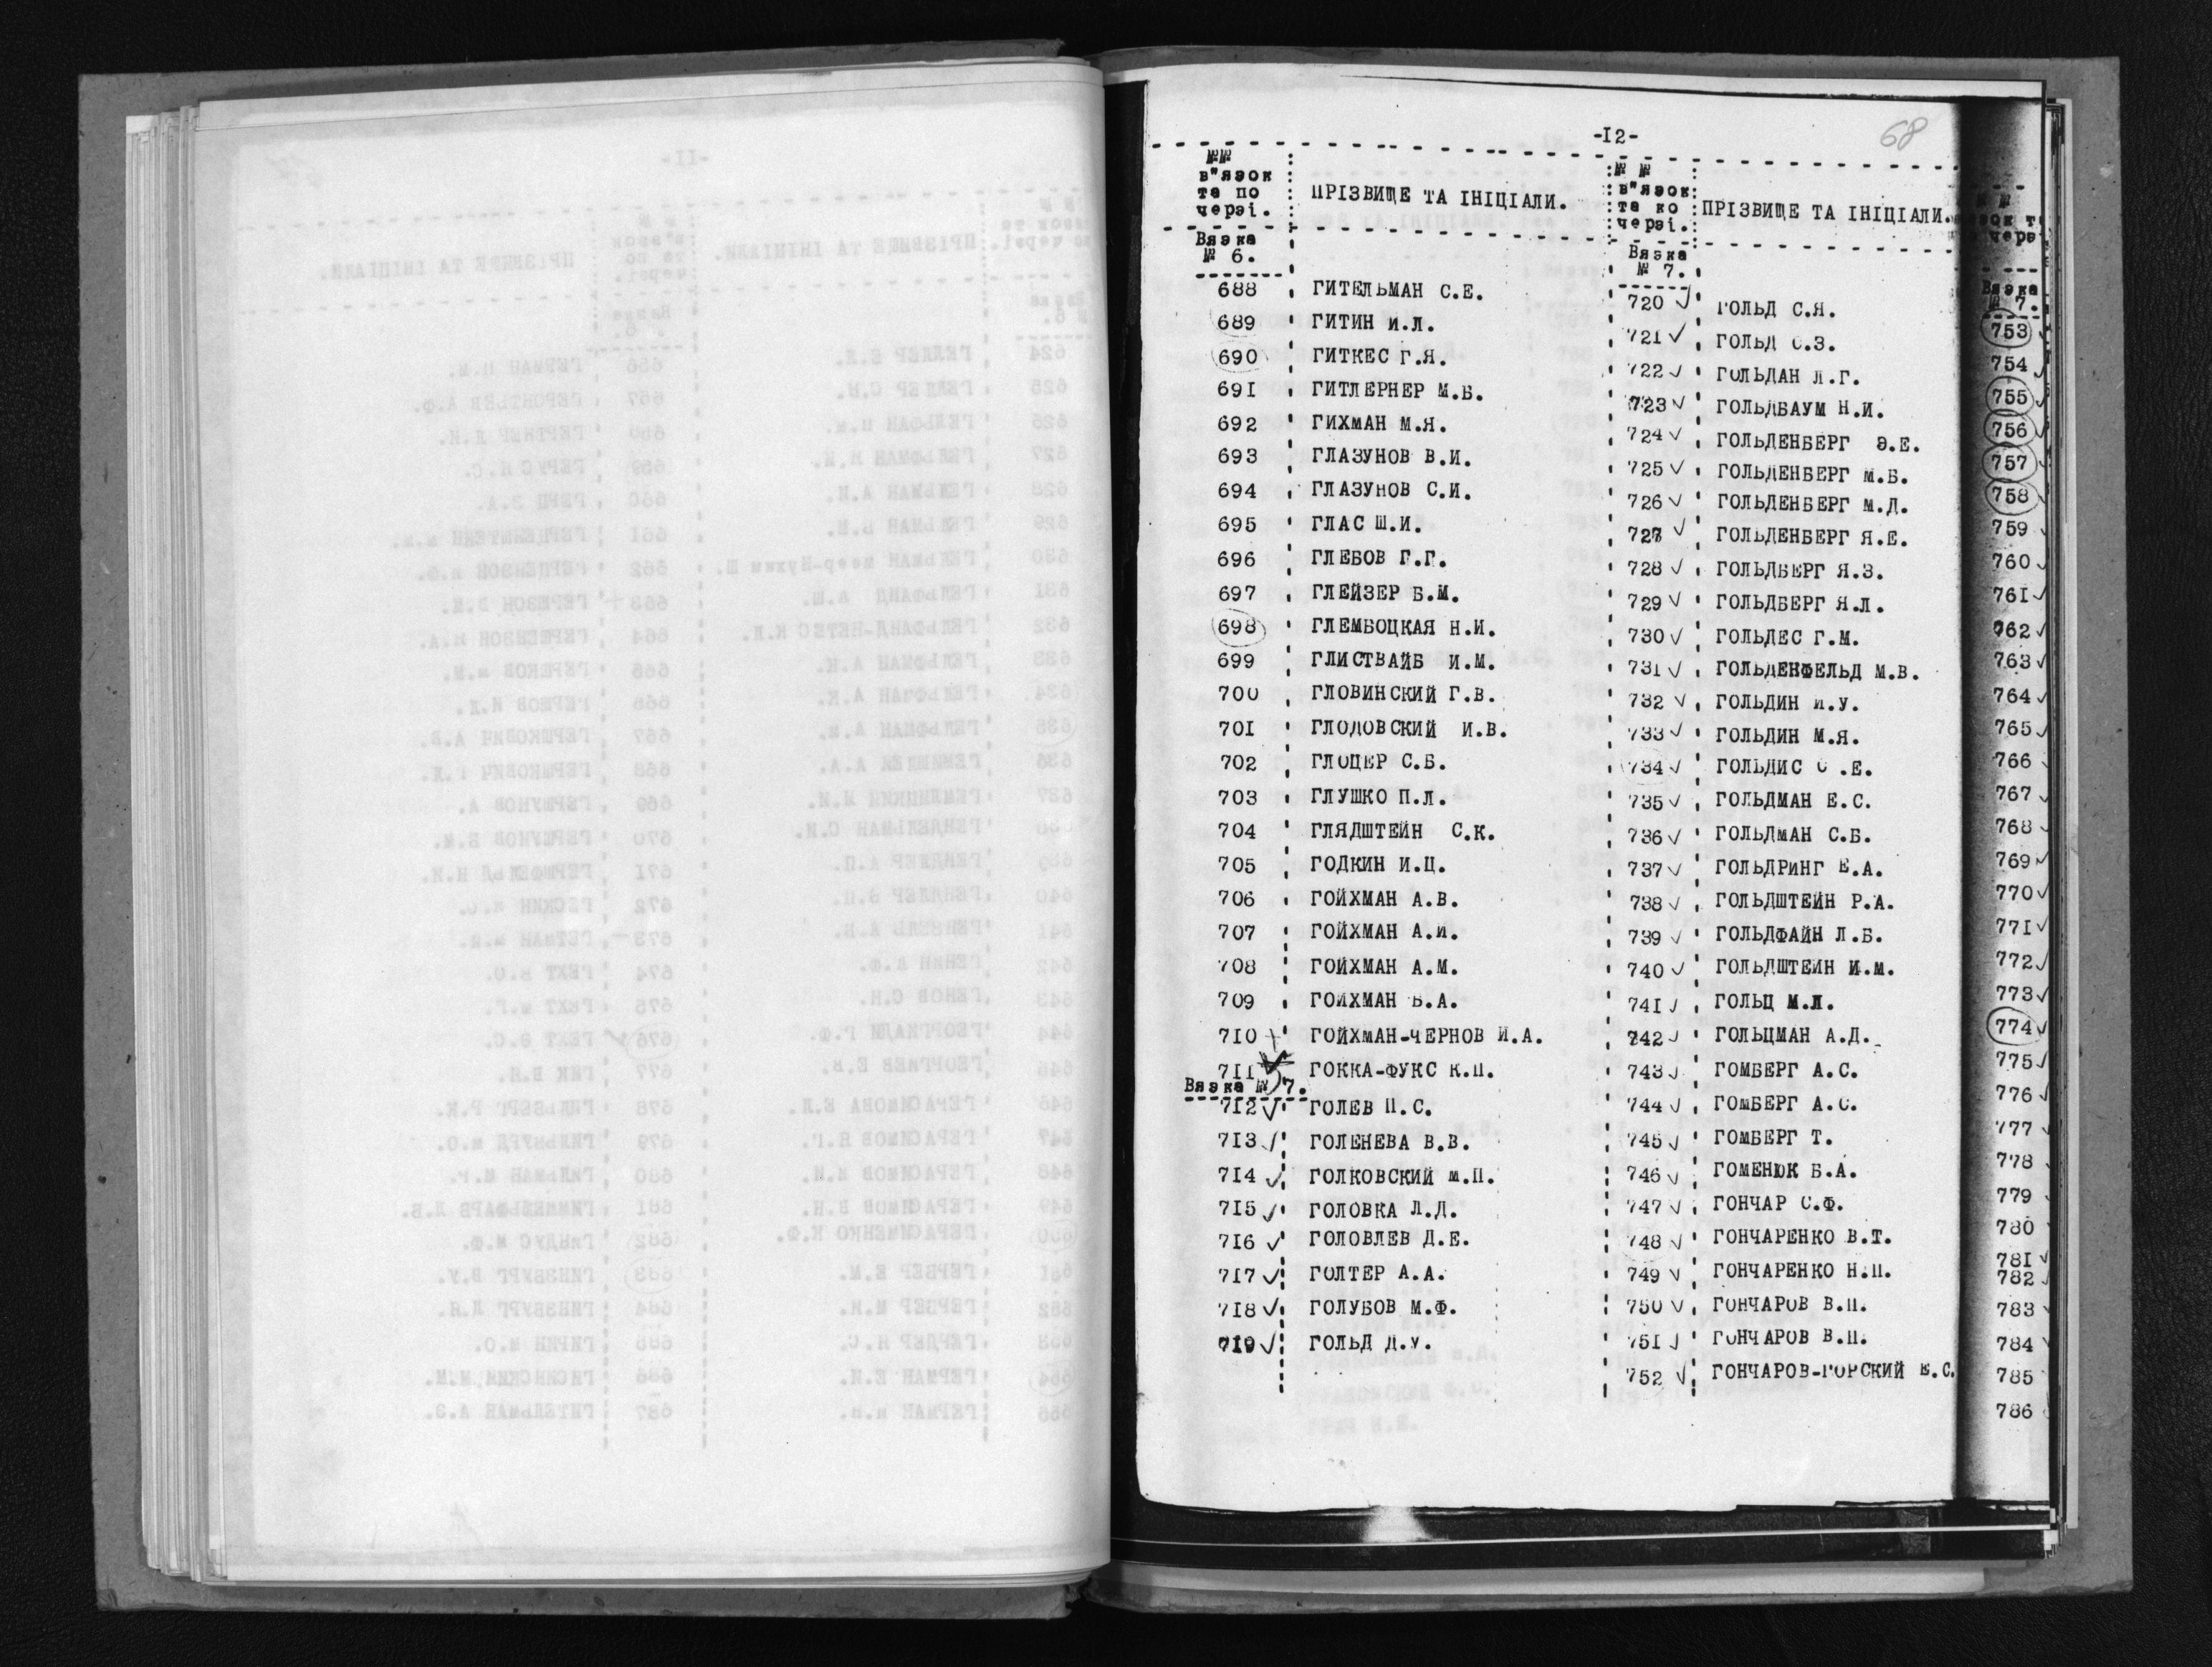 -I2-
68
№№
в"язок
та по
черзі.
ПРІЗВИЩЕ ТА ІНІЦІАЛИ.
Вязка
№ 6.
688 ГИТЕЛЬМАН С.Е.
689 ГИТИН И.Л.
690 ГИТКЕС Г.Я.
69I ГИТЛЕРНЕР М.Б.
692 ГИХМАН М.Я.
693 ГЛАЗУНОВ В.И.
694 ГЛАЗУНОВ С.И.
695 ГЛАС Ш.И.
696 ГЛЕБОВ Г.Г.
697 ГЛЕЙЗЕР Б.М.
698 ГЛЕМБОЦКАЯ Н.И.
699 ГЛИСТВАЙБ И.М.
700 ГЛОВИНСКИЙ Г.В.
70I ГЛОДОВСКИЙ И.В.
702 ГЛОЦЕР С.Б.
703 ГЛУШКО П.Л.
704 ГЛЯДШТЕЙН С.К.
705 ГОДКИН И.Ц.
706 ГОЙХМАН А.В.
707 ГОЙХМАН А.И.
708 ГОЙХМАН А.М.
709 ГОЙХМАН В.А.
7I0 + ГОЙХМАН-ЧЕРНОВ И.А.
7II ГОККА-ФУКС К.П.
Вязка № 7.
7I2 ✓ ГОЛЕВ П.С.
7I3 ✓ ГОЛЕНЕВА В.В.
7I4 ✓ ГОЛКОВСКИЙ М.П.
7I5 ✓ ГОЛОВКА Л.Д.
7I6 ✓ ГОЛОВЛЕВ Д.Е.
7I7 ✓ ГОЛТЕР А.А.
7I8 ✓ ГОЛУБОВ М.Ф.
7I9 ✓ ГОЛЬД Д.У.
№ №
в"язок
та ко
черзі.
ПРІЗВИЩЕ ТА ІНІЦІАЛИ.
Вязка
№ 7.
720 ✓ ГОЛЬД С.Я.
72I ✓ ГОЛЬД С.З.
722 ✓ ГОЛЬДАН Л.Г.
723 ✓ ГОЛЬДБАУМ Н.И.
724 ✓ ГОЛЬДЕНБЕРГ Э.Е.
725 ✓ ГОЛЬДЕНБЕРГ М.Б.
726 ✓ ГОЛЬДЕНБЕРГ М.Д.
727 ✓ ГОЛЬДЕНБЕРГ Я.Е.
728 ✓ ГОЛЬДБЕРГ Я.З.
729 ✓ ГОЛЬДБЕРГ Я.Л.
730 ✓ ГОЛЬДЕС Г.М.
73I ✓ ГОЛЬДЕНФЕЛЬД М.В.
732 ✓ ГОЛЬДИН И.У.
733 ✓ ГОЛЬДИН М.Я.
734 ✓ ГОЛЬДИС С .Е.
735 ✓ ГОЛЬДМАН Е.С.
736 ✓ ГОЛЬДМАН С.Б.
737 ✓ ГОЛЬДРИНГ Е.А.
738 ✓ ГОЛЬДШТЕЙН Р.А.
739 ✓ ГОЛЬДФАЙН Л.Б.
740 ✓ ГОЛЬДШТЕЙН И.М.
74I ✓ ГОЛЬЦ М.Л.
742 ✓ ГОЛЬЦМАН А.Д.
743 ✓ ГОМБЕРГ А.С.
744 ✓ ГОМБЕРГ А.С.
745 ✓ ГОМБЕРГ Т.
746 ✓ ГОМЕНЮК Б.А.
747 ✓ ГОНЧАР С.Ф.
748 ✓ ГОНЧАРЕНКО В.Т.
749 ✓ ГОНЧАРЕНКО Н.П.
750 ✓ ГОНЧАРОВ В.П.
75I ✓ ГОНЧАРОВ В.П.
752 ✓ ГОНЧАРОВ-ГОРСКИЙ Е.С.
Вязка
№ 7.
753 ✓
754 ✓
755 ✓
756 ✓
757 ✓
758 ✓
759 ✓
760 ✓
76I ✓
762 ✓
763 ✓
764 ✓
765 ✓
766 ✓
767 ✓
768 ✓
769 ✓
770 ✓
77I ✓
772 ✓
773 ✓
774 ✓
775 ✓
776 ✓
777 ✓
778 ✓
779 ✓
780
78I ✓
782 ✓
783 ✓
784 ✓
785
786